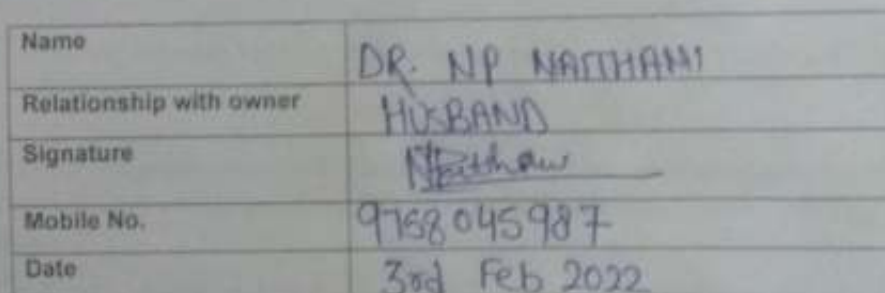 Name DR. NP NAITHANI
Relationship with owner HUSBAND
Signature
Mobile No. 9758045987
Date 3rd Feb 2022